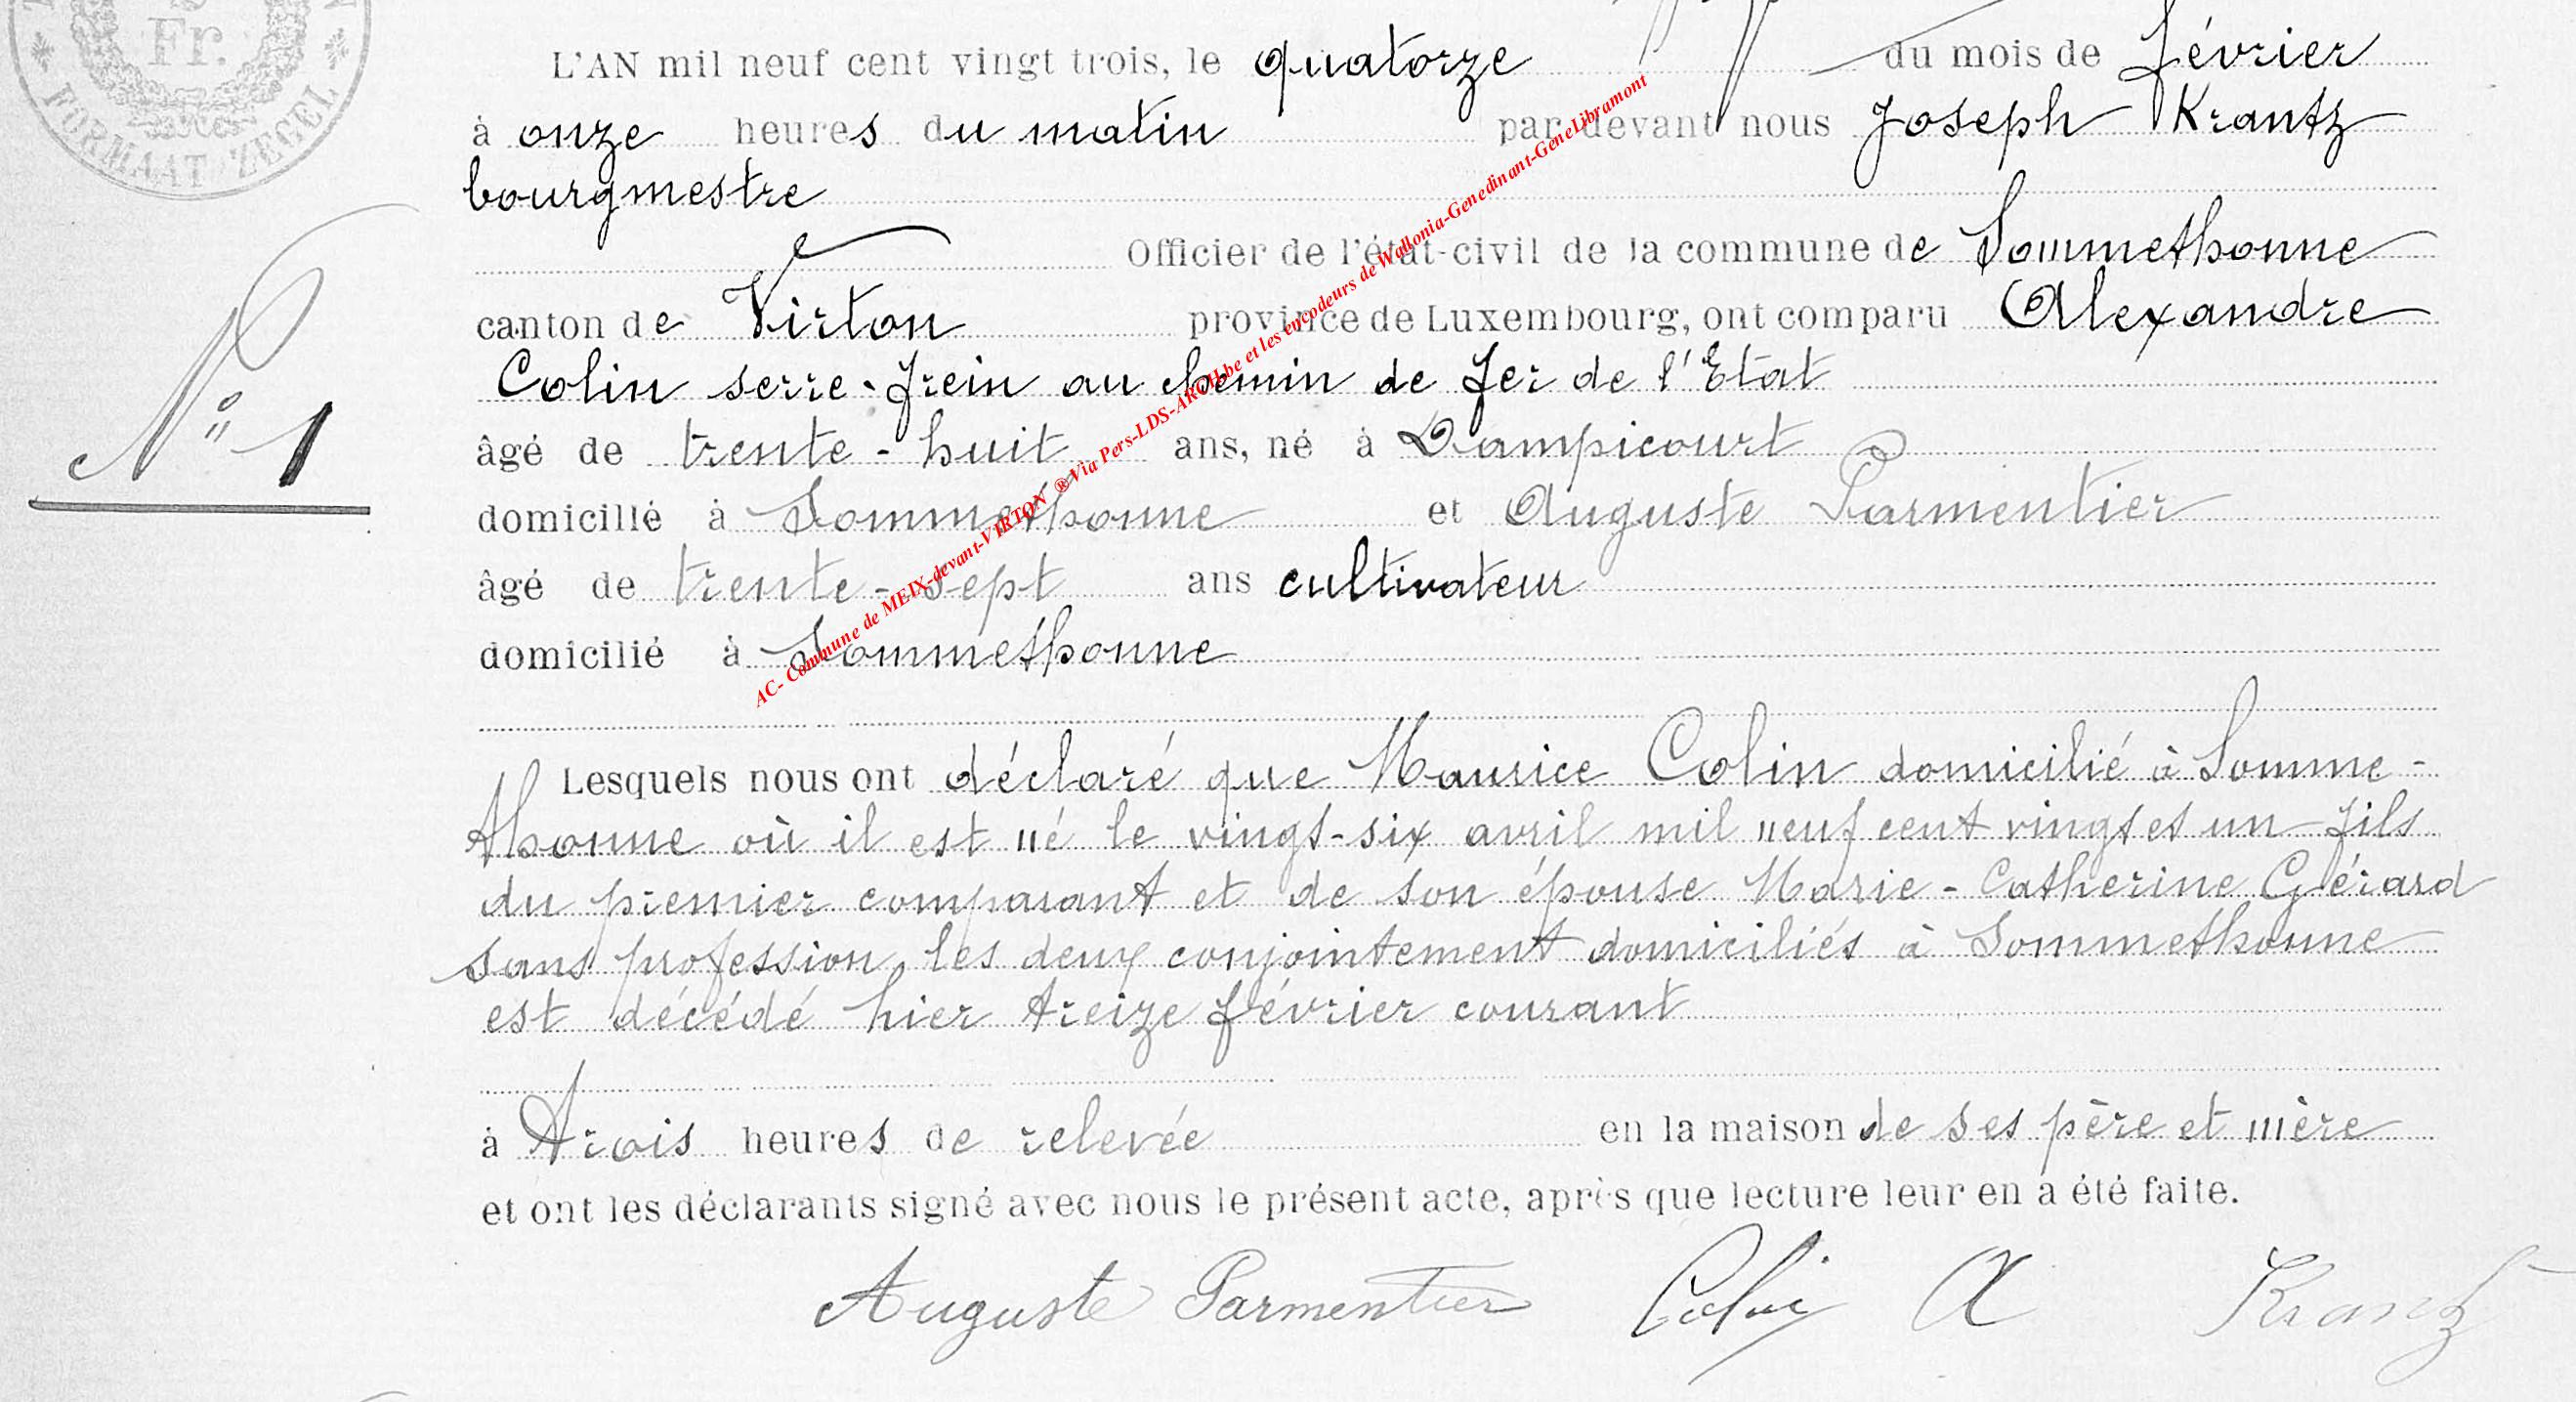 Fr.
FORMAAT ZEGEL
L'AN mil neuf cent vingt trois, le quatorze du mois de février
à onze heures du matin par devant nous Joseph Krantz
bourgmestre
Officier de l'état-civil de la commune de Sommethonne
canton de Virton province de Luxembourg, ont comparu Alexandre
Colin serre-frein au chemin de fer de l'Etat
N° 1
âgé de trente-huit ans, né à Dampicourt
domicilié à Sommethonne et Auguste Parmentier
âgé de trente-sept ans cultivateur
domicilié à Sommethonne
AC- Commune de MEIX-devant-VIRTON ®Via Pers-LDS-ARCH.be et les encodeurs de Wallonia-Genedinant-GeneLibramont
Lesquels nous ont déclaré que Maurice Colin domicilié à Somme-
thonne où il est né le vingt-six avril mil neuf cent vingt et un fils
du premier comparant et de son épouse Marie-Catherine Gérard
sans profession, les deux conjointement domiciliés à Sommethonne
est décédé hier treize février courant
à trois heures de relevée en la maison de ses père et mère
et ont les déclarants signé avec nous le présent acte, après que lecture leur en a été faite.
Auguste Parmentier Colin A Krantz